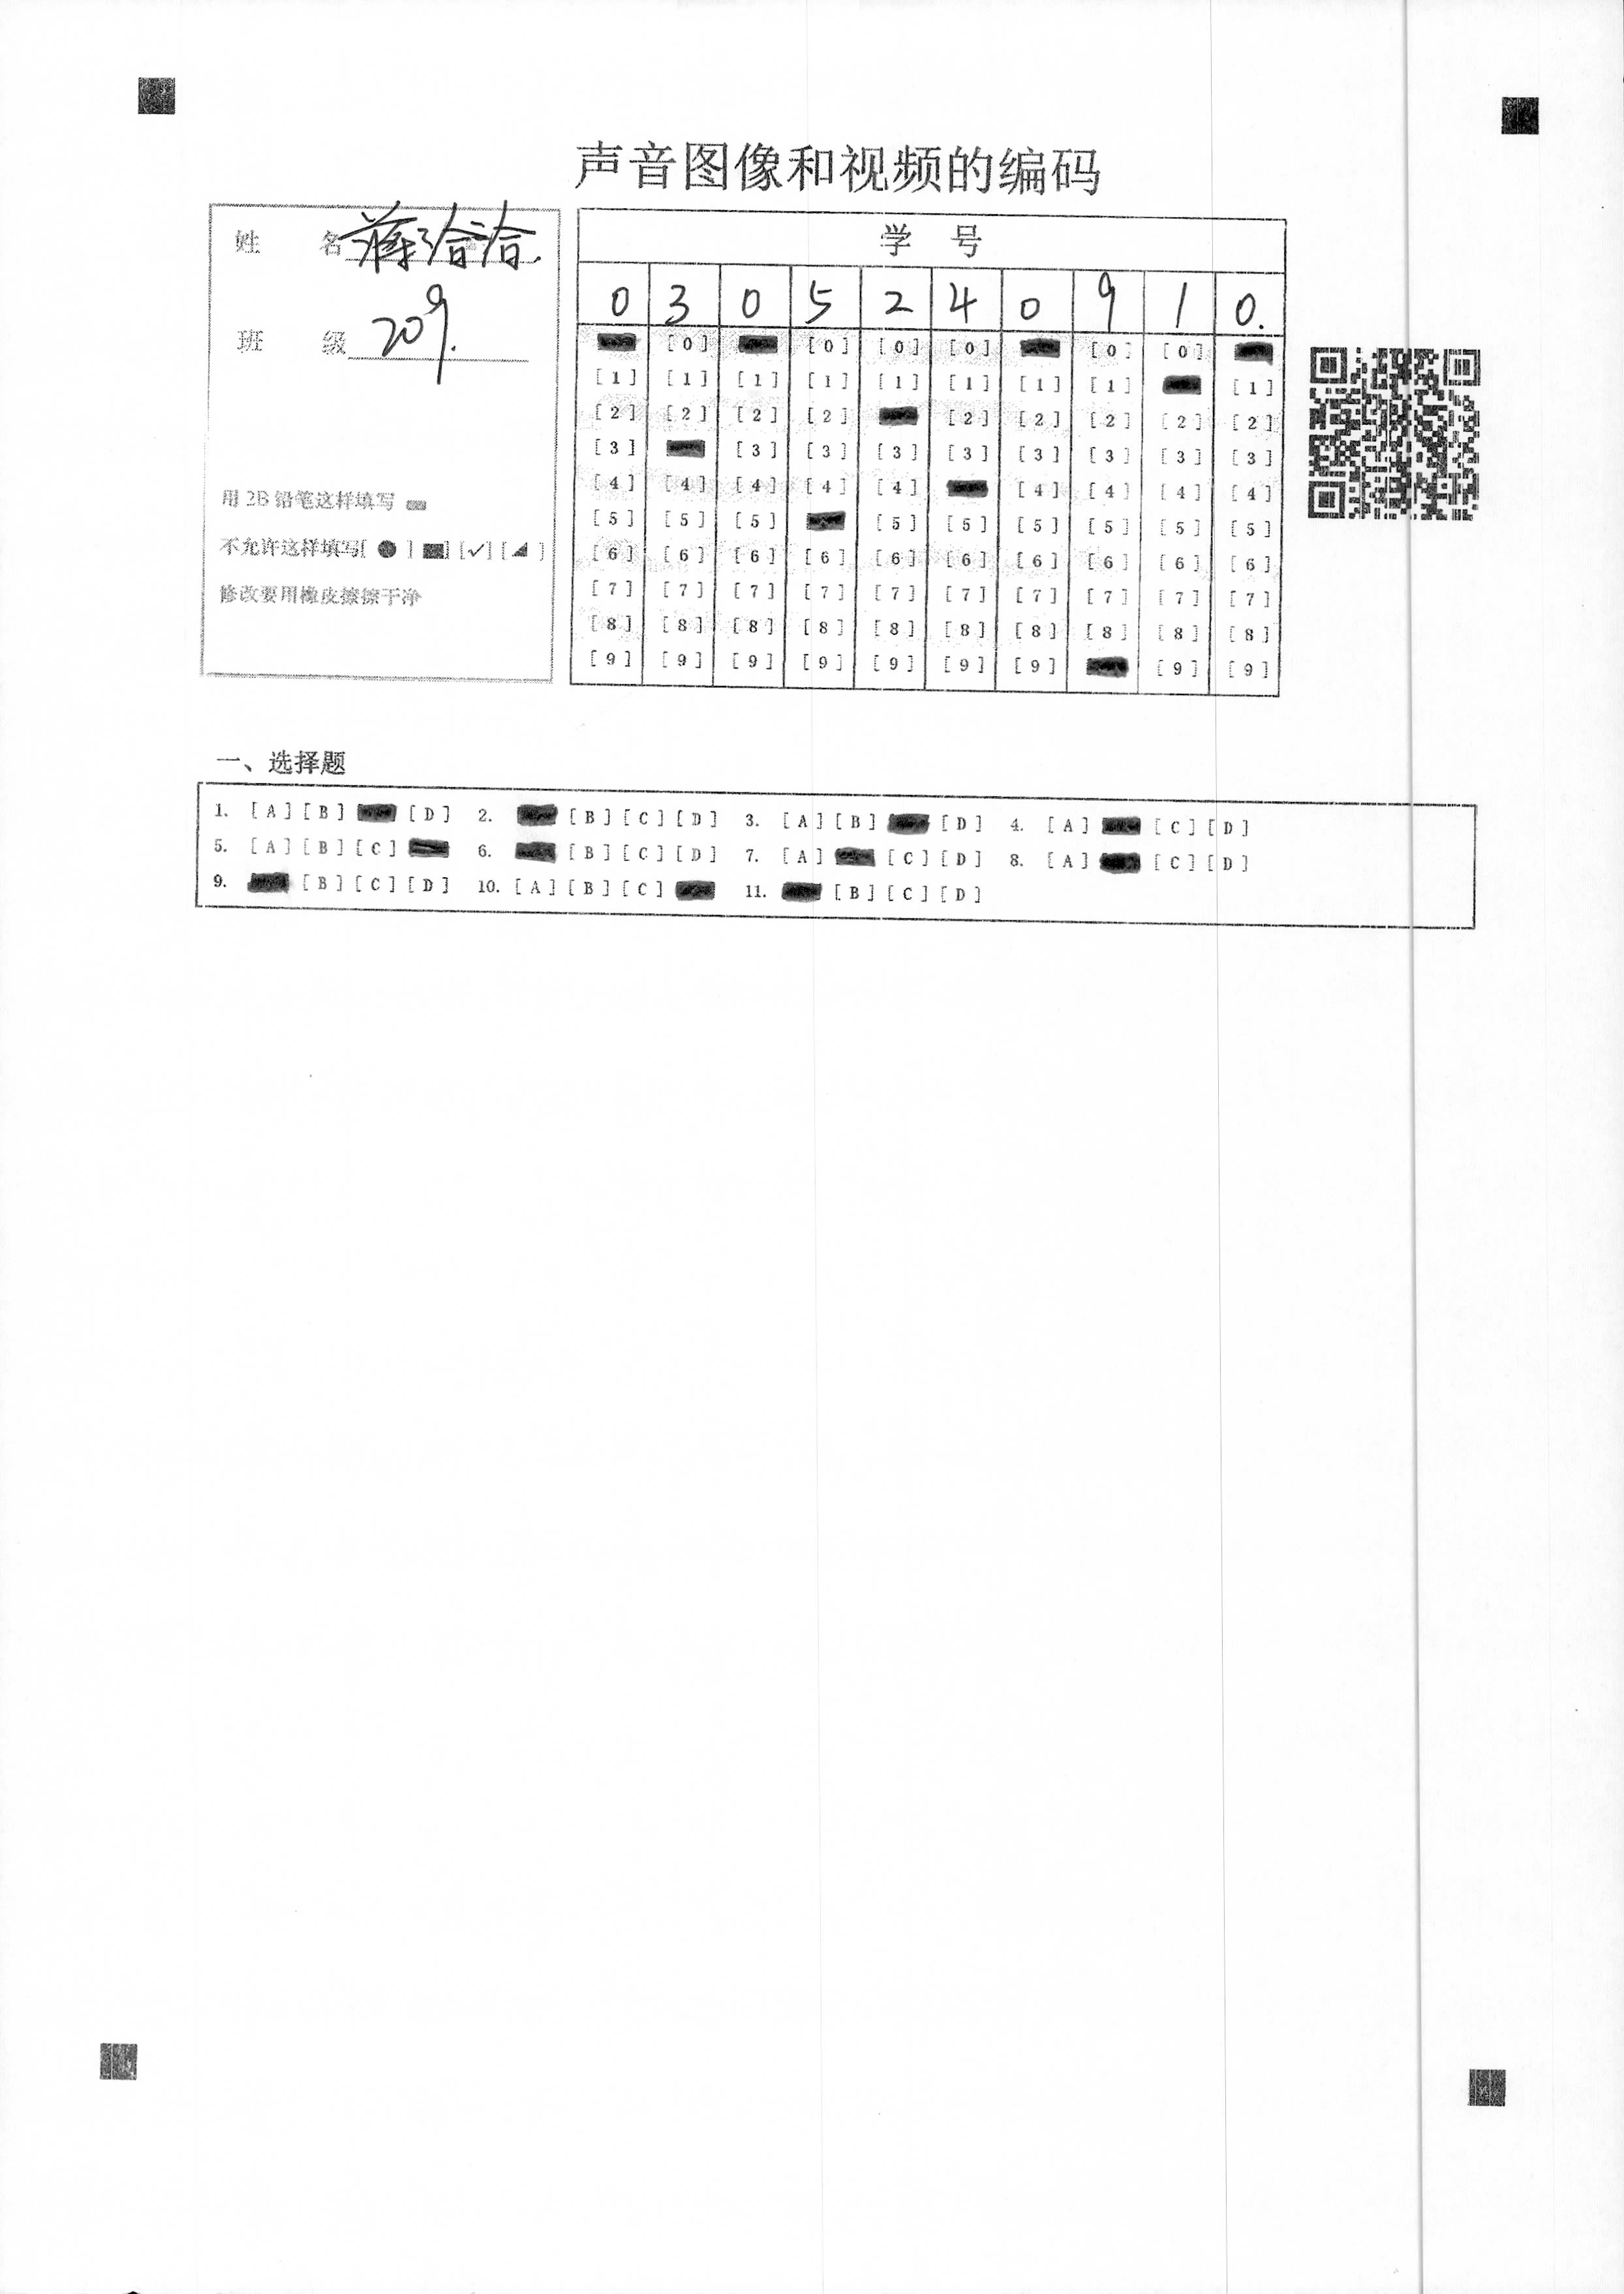 声音图像和视频的编码
姓 名 蒋洽洽.
班 级 209.
用 2B 铅笔这样填写
不允许这样填写[ ● ] [■] [✓] [◢ ]
修改要用橡皮擦擦干净
学 号
0 3 0 5 2 4 0 9 1 0.
[0] [0] [0] [0] [0] [0]
[1] [1] [1] [1] [1] [1] [1] [1] [1]
[2] [2] [2] [2] [2] [2] [2] [2] [2]
[3] [3] [3] [3] [3] [3] [3] [3] [3]
[4] [4] [4] [4] [4] [4] [4] [4] [4]
[5] [5] [5] [5] [5] [5] [5] [5] [5]
[6] [6] [6] [6] [6] [6] [6] [6] [6] [6]
[7] [7] [7] [7] [7] [7] [7] [7] [7] [7]
[8] [8] [8] [8] [8] [8] [8] [8] [8] [8]
[9] [9] [9] [9] [9] [9] [9] [9] [9]
一、选择题
1. [A] [B] [D] 2. [B] [C] [D] 3. [A] [B] [D] 4. [A] [C] [D]
5. [A] [B] [C] 6. [B] [C] [D] 7. [A] [C] [D] 8. [A] [C] [D]
9. [B] [C] [D] 10. [A] [B] [C] 11. [B] [C] [D]